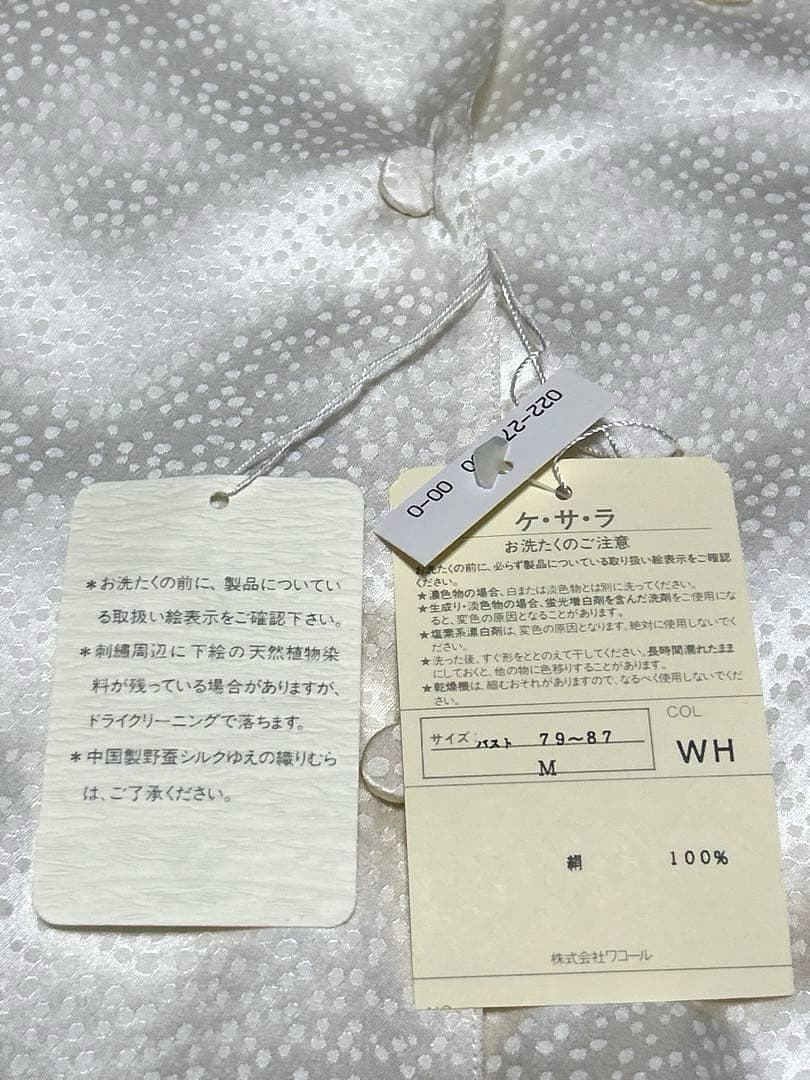 *お洗たくの前に、製品についてい
る取扱い絵表示をご確認下さい。
*刺繡周辺に下絵の天然植物染
料が残っている場合がありますが、
ドライクリーニングで落ちます。
*中国製野蚕シルクゆえの織りむら
は、ご了承ください。
022-27
00-0
ケ・サ・ラ
お洗たくのご注意
お洗たくの前に、必らず製品についている取り扱い絵表示をご確認
ください。
★濃色物の場合、白または淡色物とは別に洗ってください。
★生成り・淡色物の場合、蛍光増白剤を含んだ洗剤をご使用にな
ると、変色の原因となることがあります。
★塩素系漂白剤は、変色の原因となります。絶対に使用しないでく
ださい。
★洗った後、すぐ形をととのえて干してください。長時間濡れたまま
にしておくと、他の物に色移りすることがあります。
★乾燥機は、縮むおそれがありますので、なるべく使用しないでくだ
さい。
サイズ バスト 79～87
M
COL
WH
絹 100%
株式会社ワコール